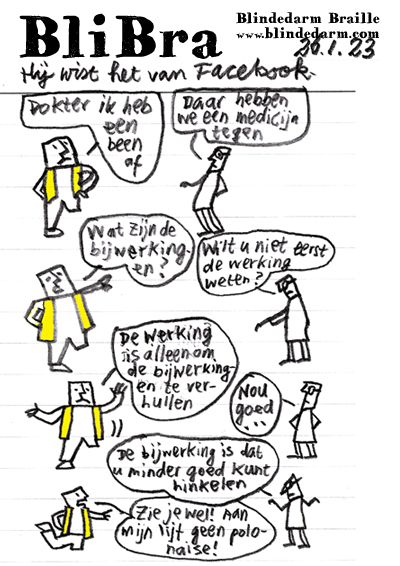 BliBra
Blindedarm Braille
www.blindedarm.com
26.1.23
Hij wist het van Facebook.
Dokter ik heb
een
been
af
Daar hebben
we een medicijn
tegen
Wat zijn de
bijwerking-
en?
Wilt u niet eerst
de werking
weten?
De werking
is alleen om
de bijwerking-
en te ver-
hullen
Nou
goed
...
De bijwerking is dat
u minder goed kunt
hinkelen
Zie je wel! Aan
mijn lijf geen polo-
naise!